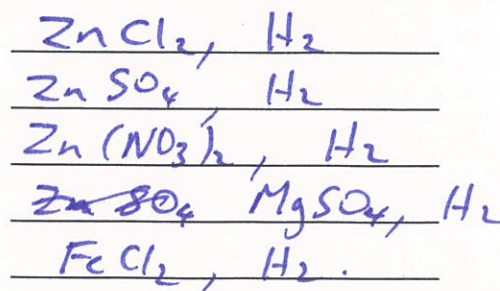 ZnCl₂, H₂
ZnSO₄, H₂
Zn(NO₃)₂, H₂
ZnSO₄ MgSO₄, H₂
FeCl₂, H₂.